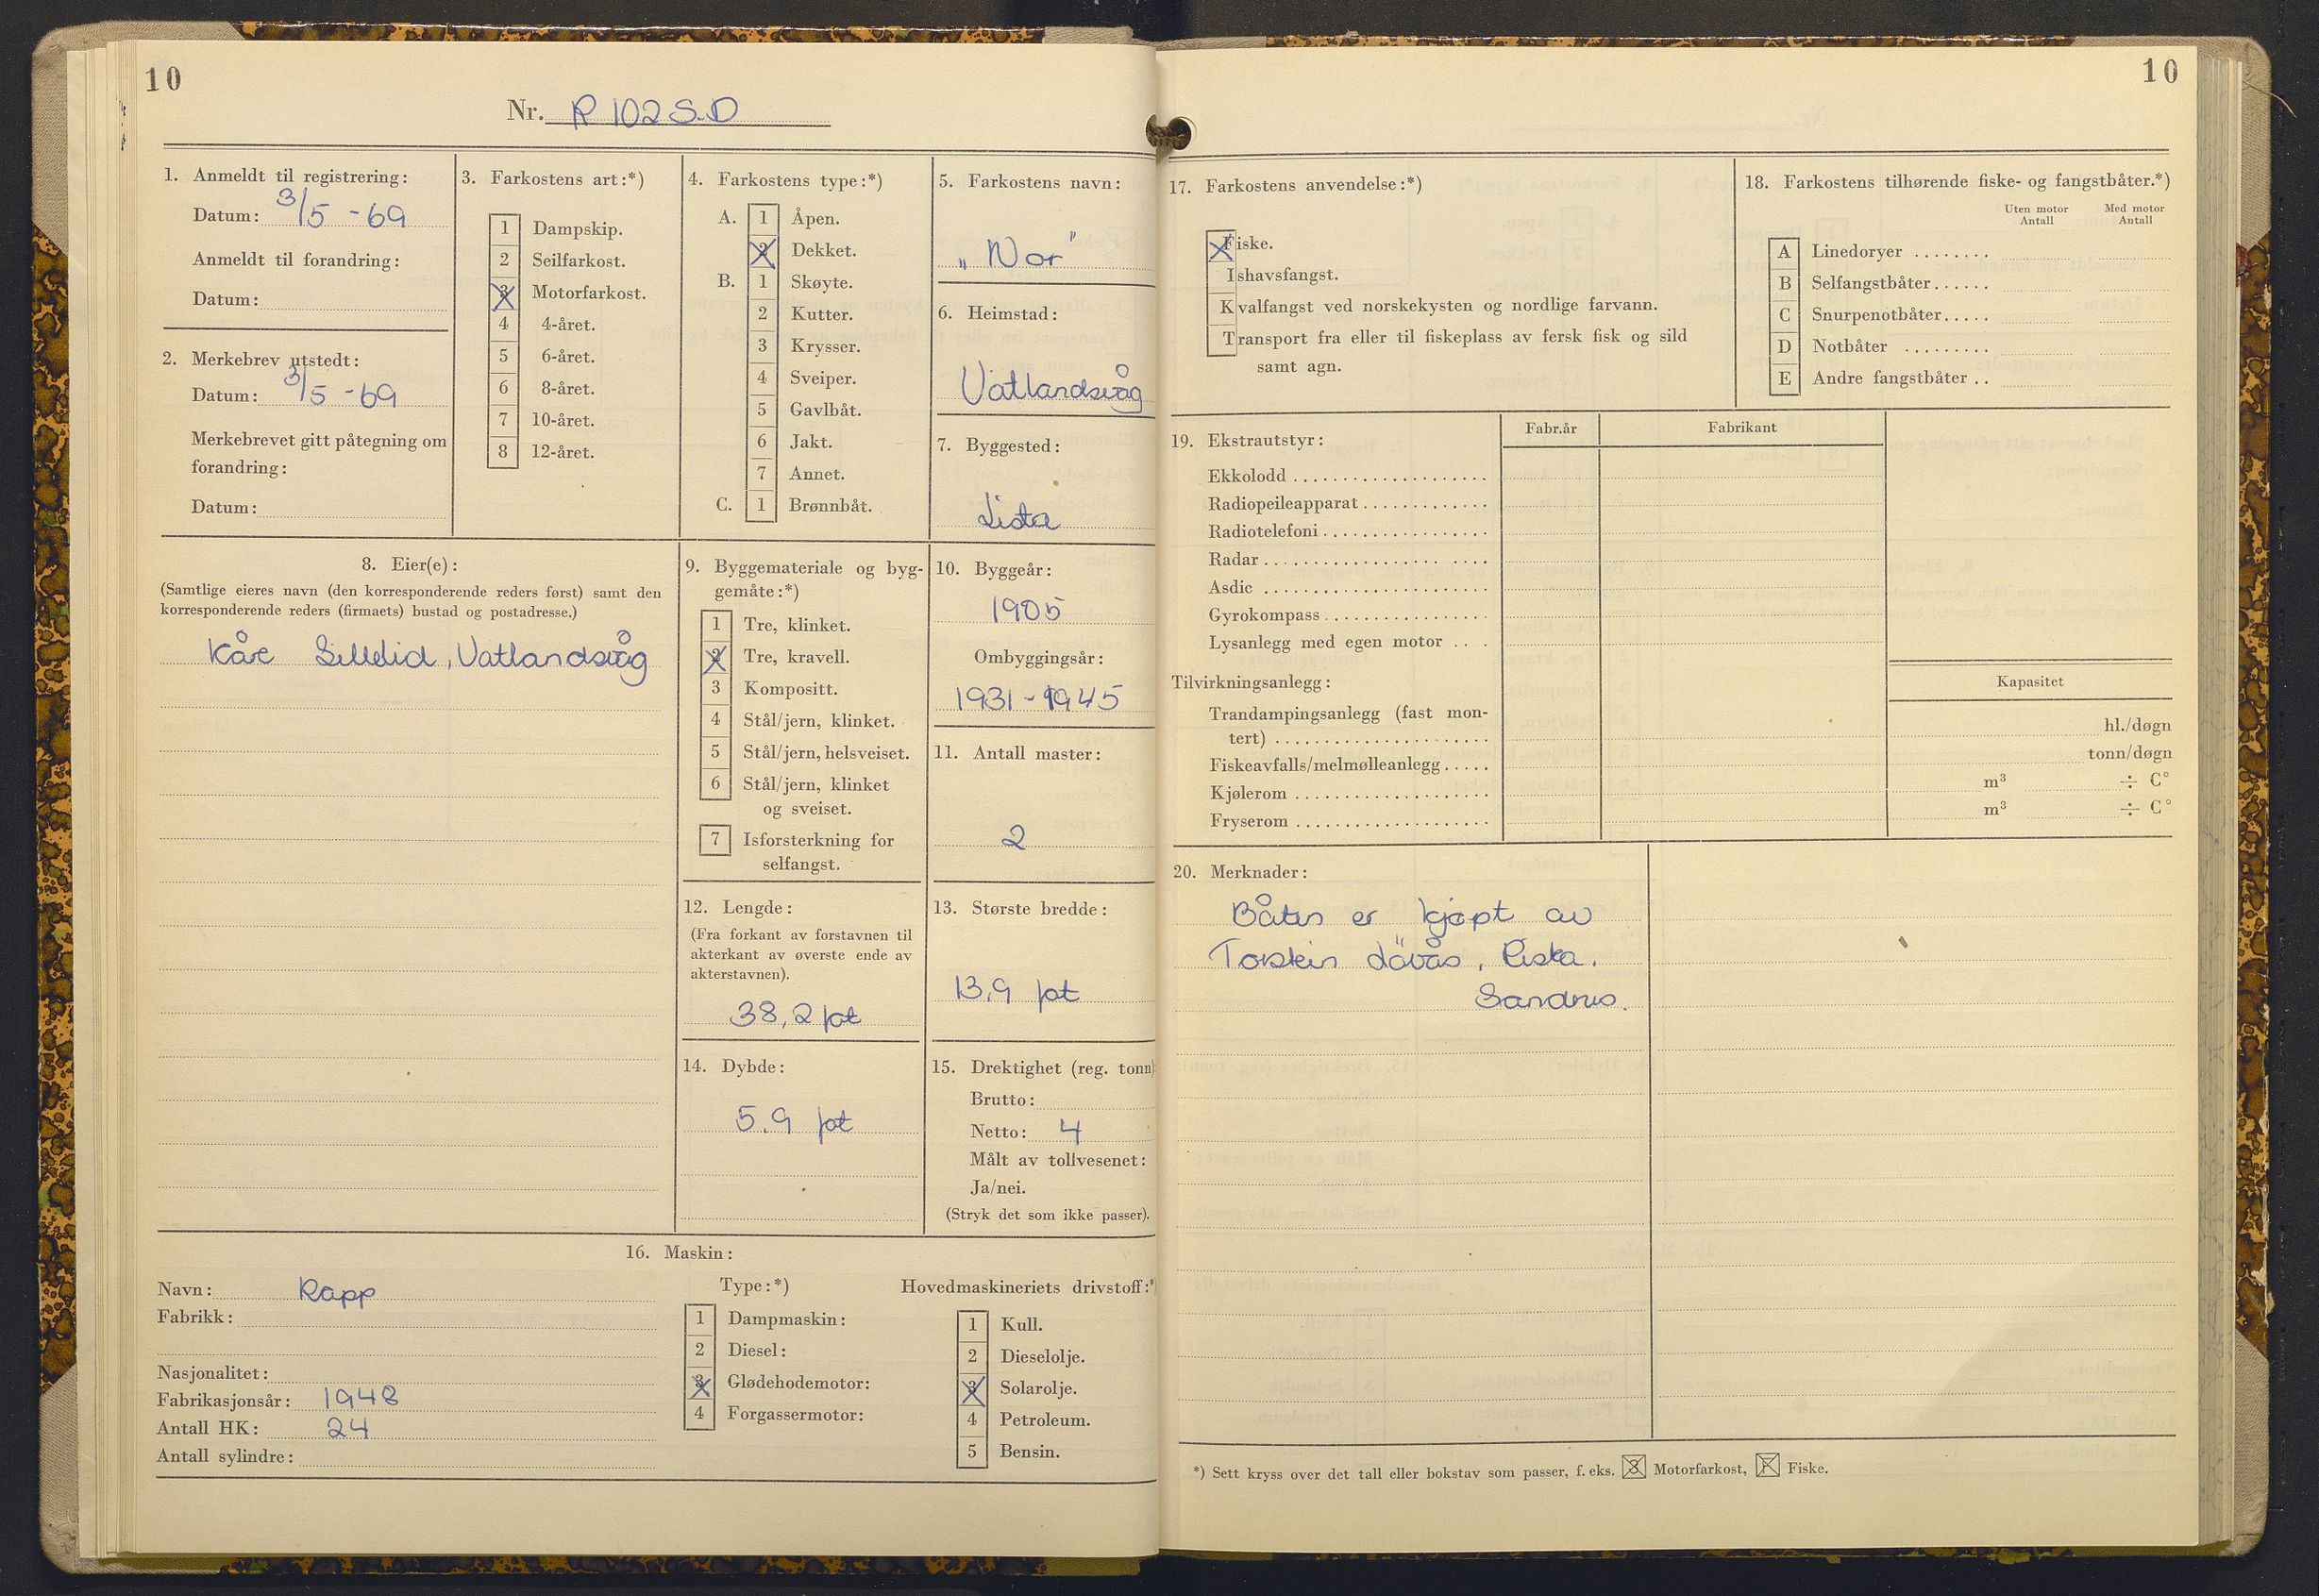 10
Nr. R 102 S.D
1. Anmeldt til registrering:
Datum: 3/5 -69
Anmeldt til forandring:
Datum:
2. Merkebrev utstedt:
Datum: 3/5 -69
Merkebrevet gitt påtegning om
forandring:
Datum:
3. Farkostens art:*)
1 Dampskip.
2 Seilfarkost.
3 Motorfarkost.
4 4-året.
5 6-året.
6 8-året.
7 10-året.
8 12-året.
4. Farkostens type:*)
A. 1 Åpen.
2 Dekket.
B. 1 Skøyte.
2 Kutter.
3 Krysser.
4 Sveiper.
5 Gavlbåt.
6 Jakt.
7 Annet.
C. 1 Brønnbåt.
5. Farkostens navn:
„Nor"
6. Heimstad:
Vatlandsvåg
7. Byggested:
Lista
8. Eier(e):
(Samtlige eieres navn (den korresponderende reders først) samt den
korresponderende reders (firmaets) bustad og postadresse.)
Kåre Lillelid, Vatlandsvåg
9. Byggemateriale og byg-
gemåte:*)
1 Tre, klinket.
2 Tre, kravell.
3 Kompositt.
4 Stål/jern, klinket.
5 Stål/jern, helsveiset.
6 Stål/jern, klinket
og sveiset.
7 Isforsterkning for
selfangst.
10. Byggeår:
1905
Ombyggingsår:
1931 - 1945
11. Antall master:
2
12. Lengde:
(Fra forkant av forstavnen til
akterkant av øverste ende av
akterstavnen).
38,2 fot
13. Største bredde:
13,9 fot
14. Dybde:
5.9 fot
15. Drektighet (reg. tonn)
Brutto:
Netto: 4
Målt av tollvesenet:
Ja/nei.
(Stryk det som ikke passer).
16. Maskin:
Navn: Rapp
Fabrikk:
Nasjonalitet:
Fabrikasjonsår: 1948
Antall HK: 24
Antall sylindre:
Type:*)
1 Dampmaskin:
2 Diesel:
3 Glødehodemotor:
4 Forgassermotor:
Hovedmaskineriets drivstoff:*
1 Kull.
2 Dieselolje.
3 Solarolje.
4 Petroleum.
5 Bensin.
10
17. Farkostens anvendelse:*)
Fiske.
Ishavsfangst.
Kvalfangst ved norskekysten og nordlige farvann.
Transport fra eller til fiskeplass av fersk fisk og sild
samt agn.
18. Farkostens tilhørende fiske- og fangstbåter.*)
Uten motor Med motor
Antall Antall
A Linedoryer ........
B Selfangstbåter......
C Snurpenotbåter.....
D Notbåter .........
E Andre fangstbåter ..
19. Ekstrautstyr:
Fabr.år Fabrikant
Ekkolodd ....................
Radiopeileapparat.............
Radiotelefoni.................
Radar.................. ....
Asdic .......................
Gyrokompass.................
Lysanlegg med egen motor ...
Tilvirkningsanlegg:
Kapasitet
Trandampingsanlegg (fast mon-
tert) ...................... hl./døgn
Fiskeavfalls/melmølleanlegg..... tonn/døgn
Kjølerom .................... m³ ÷ C°
Fryserom .................... m³ ÷ C°
20. Merknader:
Båten er kjøpt av
Torstein Lövås, Riska.
Sandnes.
*) Sett kryss over det tall eller bokstav som passer, f. eks. 3 Motorfarkost, F Fiske.